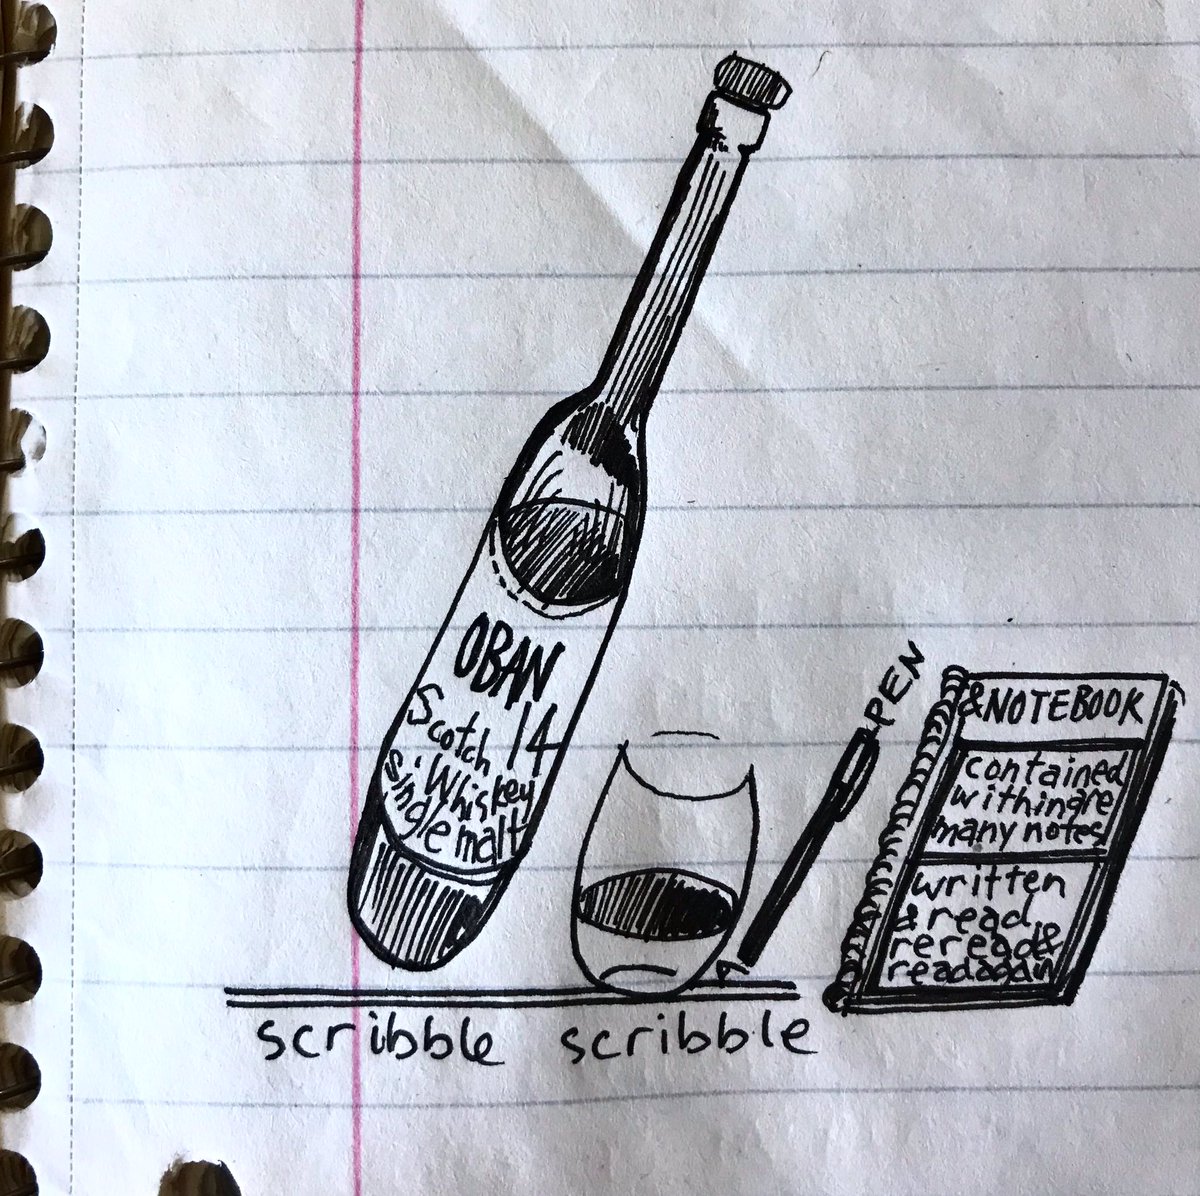 OBAN
Scotch 14
Whiskey
single malt
PEN
&NOTEBOOK
contained
within are
many notes
written
& read
reread &
read again
scribble scribble